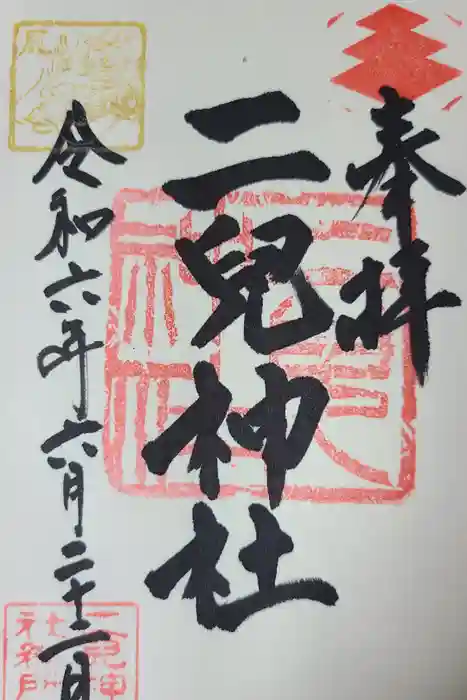 奉拝
二兒神社
令和六年六月二十一日